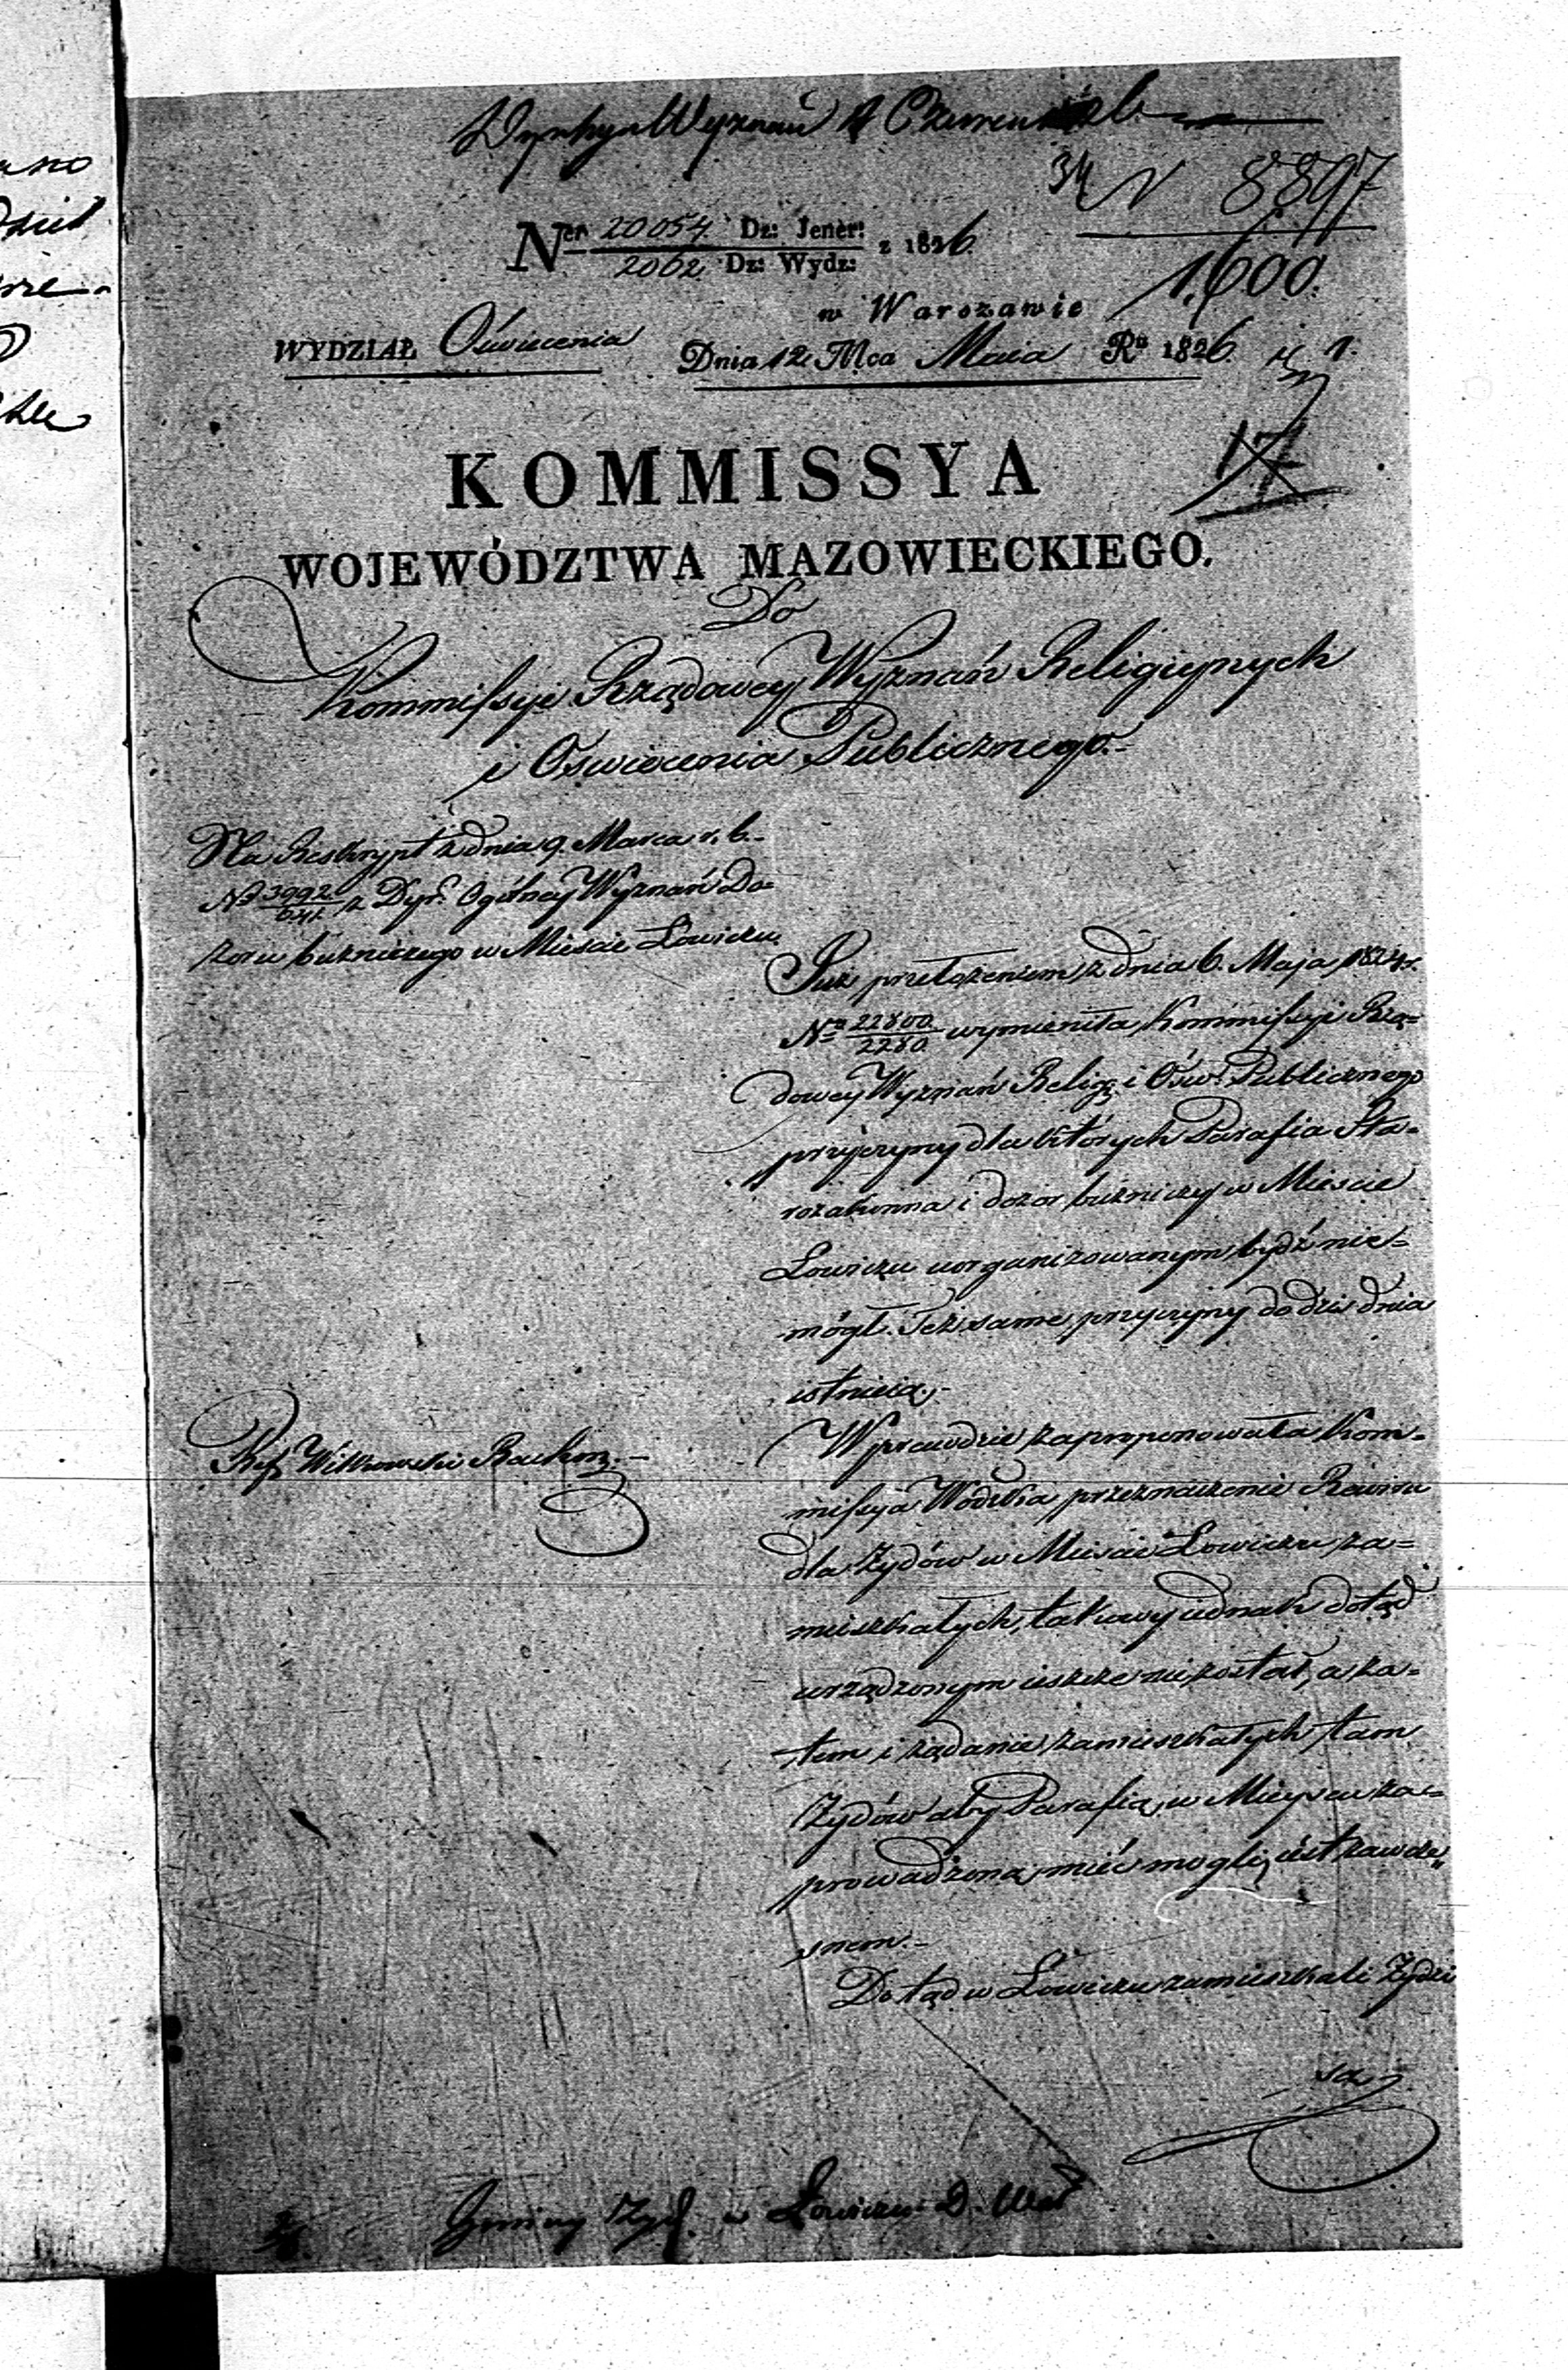 Wyznań
34 N 8897
1600.
Nro 20054 Dz: Jener: z 1826.
2062 Dz: Wydz:
w Warszawie
WYDZIAŁ Oświecenia Dnia 12 Mca Maia Ru 1826
KOMMISSYA
WOJEWÓDZTWA MAZOWIECKIEGO.
Do
Kommissyi Rządowey Wyznań Religiynych
i Oswiecenia Publicznego.-
Na Reskrypt z dnia 9. Marca r. b.-
No 3992 z Dyr. Ogólney Wyznań Do=
zoru bużniczego w Miescie Łowiczu.
Już przełożeniem z dnia 6. Maja 1824 r.
No 22800/2280 wymieniła Kommissyi Rzą=
dowey Wyznań Relig: i Ośw: Publicznego
przyczyny dla których Parafia Sta=
rozakonna i dozor bużniczy w Miescie
Łowiczu uorganizowanym bydź nie=
mógł. Też same przyczyny do dziś dnia
istnieią.-
Wprawdzie zaproponowała Kom=
missya Wodzka przeznaczenie Rewiru
dla Żydów w Miescie Łowiczu za=
mieszkałych, takowy iednak dotąd
urządzonym ieszcze nie został, a za=
tem i żądanie zamieszkałych tam
Żydów aby Parafią w Mieyscu za=
prowadzoną mieć mogli, iest zawcze„
snem.-
Dotąd w Łowiczu zamieszkali Żydzi
są
Ref. Witkowski
Gminy Żyd. w Łowiczu